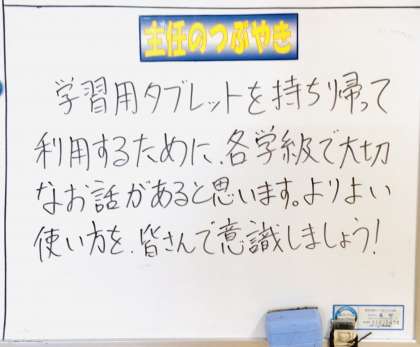 主任のつぶやき
学習用タブレットを持ち帰って
利用するために、各学級で大切
なお話があると思います。よりよい
使い方を、皆さんで意識しましょう!